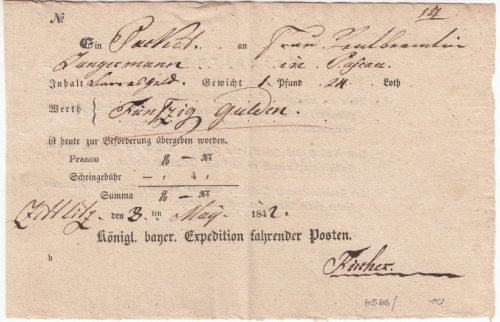 № 157
Ein Packet an Frau Rentbeamtin
Langermann in Passau.
Inhalt Baares Geld. Gewicht 1. Pfund 24. Loth
Werth { Fünfzig Gulden.
ist heute zur Beförderung übergeben worden.
Franco
Scheingebühr — „ 4 „
Summa
den 3. ten May. 1842.
Königl. bayer. Expedition fahrender Posten.
b
Fischer.
8586/ 10